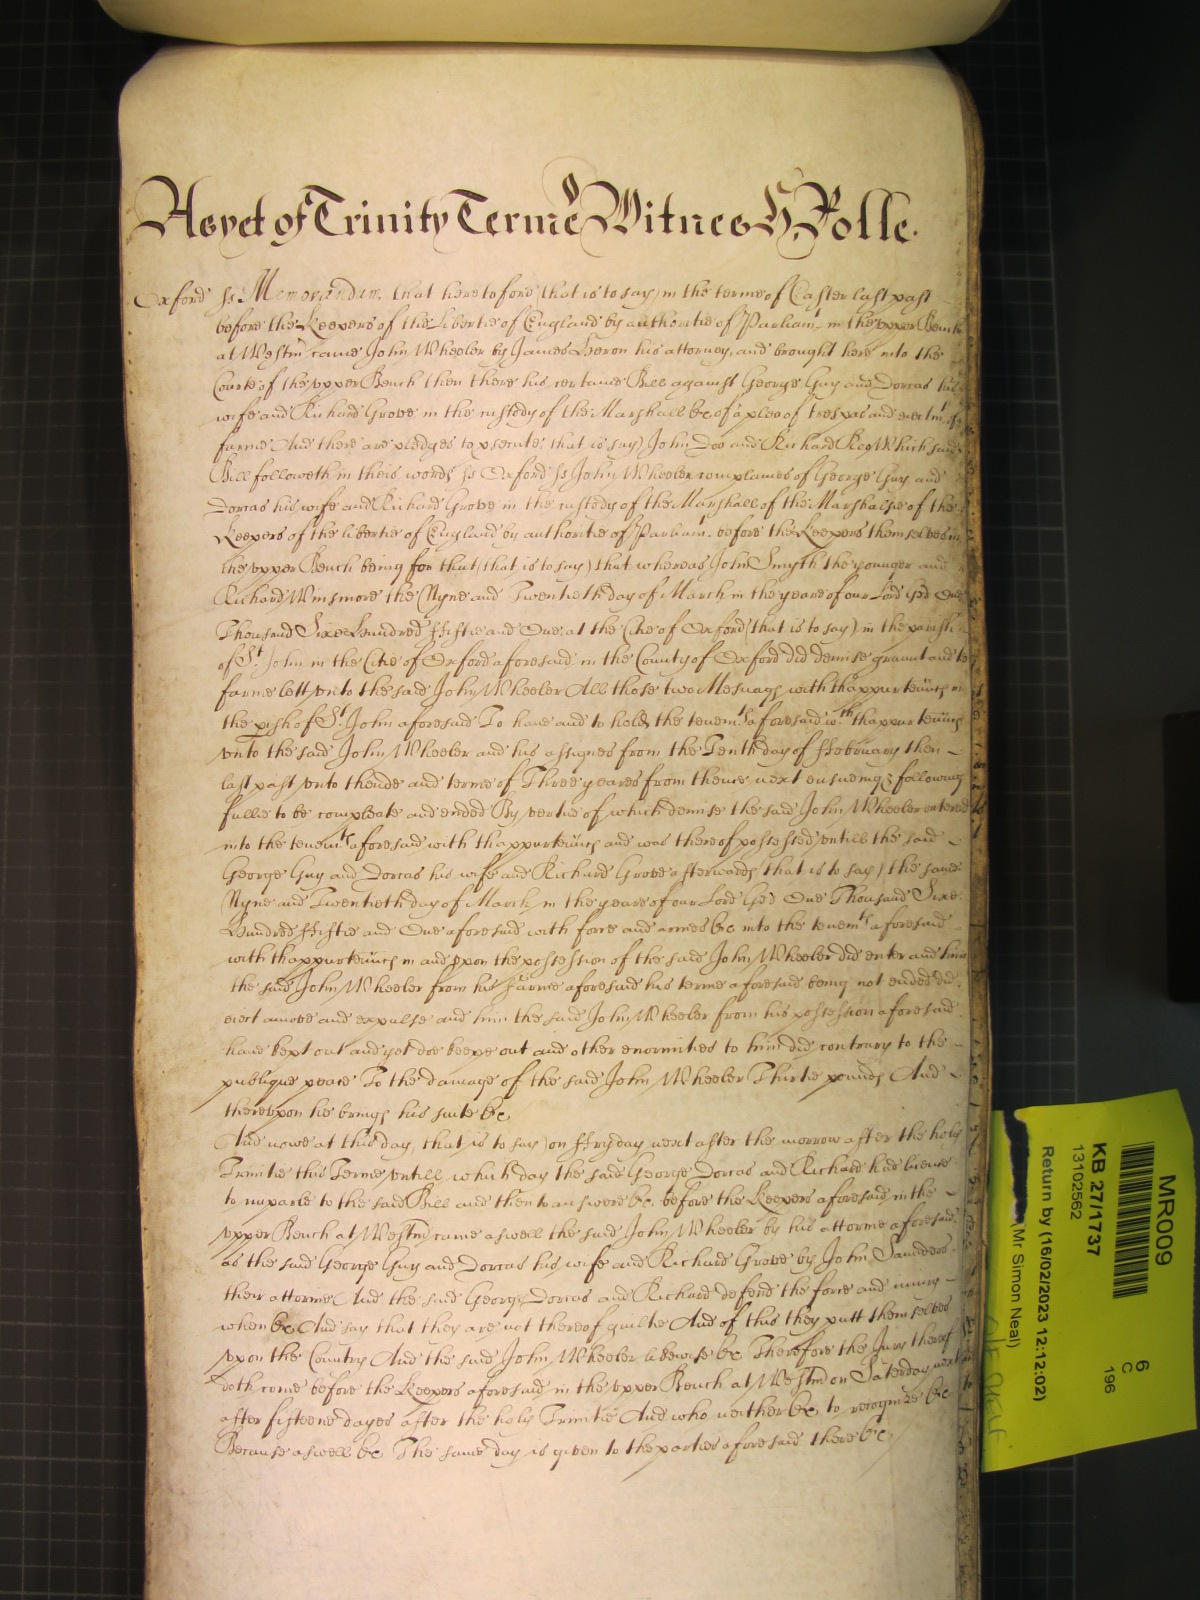 As yet of Trinity Terme Witnes H Rolle.
Oxford ss Memorandum that heretofore that is to say in the terme of Easter last past
before the Keepers of the Libertie of England by authoritie of Parliamt in the upper Bench
at Westm came John Wheeler by James Heron his attorney and brought here into the
Courte of the upper Bench then there his certaine Bill against George Guy and Dorcas his
wife and Richard Grove in the custody of the Marshall &c of a plea of trespas and eiectmt of
farme And there are pledges to psecute that is to say John Doo and Richard Roo Which said
Bill followeth in theis words ss Oxford ss John Wheeler complaines of George Guy and
Dorcas his wife and Richard Grove in the custody of the Marshall of the Marshalsie of the
Keepers of the libertie of England by authoritie of Parliamt before the Keepers themselves in
the upper Bench being for that (that is to say) that whereas John Smyth the younger and
Richard Winsmore the Nyne and Twentieth day of March in the yeare of our Lord God One
Thousand Sixe Hundred Fiftie and One at the Citie of Oxford (that is to say) in the parish
of St John in the Citie of Oxford aforesaid in the County of Oxford did demise graunt and to
farme lett unto the said John Wheeler All those two Mesuags with thappurtenncs in
the pish of St John aforesaid To have and to hold the tenemts aforesaid wth thappurtenncs
unto the said John Wheeler and his assignes from the Tenth day of February then
last past unto thende and terme of Three yeares from thence next ensueing & following
fullie to be compleate and ended By vertue of which demise the said John Wheeler entered
into the tenemts aforesaid with thappurtenncs and was thereof possessed untill the said
George Guy and Dorcas his wife and Richard Grove afterwards (that is to say) the same
Nyne and Twentieth day of March in the yeare of our Lord God One Thousand Sixe
Hundred Fiftie and One aforesaid with force and armes &c into the tenemts aforesaid
with thappurtenncs in and upon the possession of the said John Wheeler did enter and him
the said John Wheeler from his farme aforesaid his terme aforesaid being not ended did
eiect amove and expulse and him the said John Wheeler from his possession aforesaid
have kept out and yet doe keepe out and other enormities to him did contrary to the
publique peace To the damage of the said John Wheeler Thirtie pounds And
thereupon he brings his suite &c
And nowe at this day, that is to say on Fryday next after the morrow after the holy
Trinitie this Terme untill which day the said George Dorcas and Richard had licence
to imparle to the said Bill and then to answere &c before the Keepers aforesaid in the
upper Bench at Westm came aswell the said John Wheeler by his attornie aforesaid
as the said George Guy and Dorcas his wife and Richard Grove by John Saunders
their attornie And the said George Dorcas and Richard defend the force and iniury
when &c And say that they are not thereof guiltie And of this they putt themselves
upon the Country And the said John Wheeler likewise &c Therefore the Jury thereof
doth come before the Keepers aforesaid in the upper Bench at Westm on Saterday next
after fifteene dayes after the holy Trinitie And who neither &c to recognize &c
Because aswell &c The same day is given to the parties aforesaid there &c
MR009
6
C
196
KB 27/1737
13102562
Return by (16/02/2023 12:12:02)
(Mr Simon Neal)